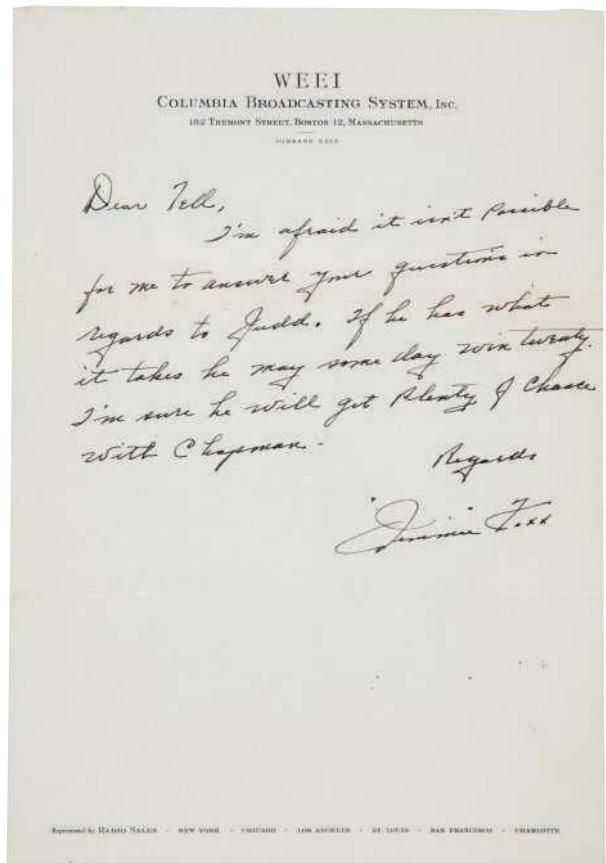 WEEI
COLUMBIA BROADCASTING SYSTEM, INC.
182 TREMONT STREET, BOSTON 12, MASSACHUSETTS
Dear Tell,
I'm afraid it isn't Possible
for me to answer your questions in
regards to Judd. If he has what
it takes he may some day win twenty.
I'm sure he will get Plenty of Chance
with Chapman.
Regards
"Jimmie" Foxx
Represented by RADIO SALES · NEW YORK · CHICAGO · LOS ANGELES · ST. LOUIS · SAN FRANCISCO · CHARLOTTE